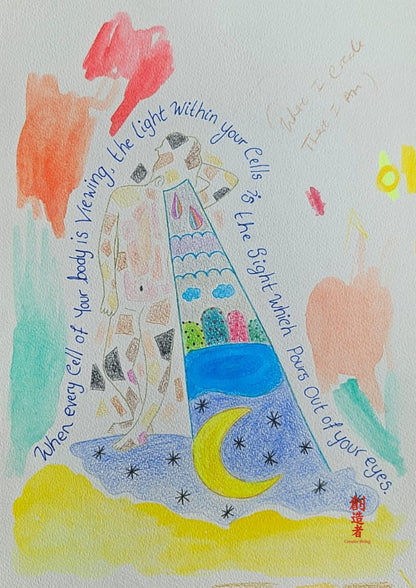 When every Cell of Your body is Viewing, the Light Within your Cells is the Sight which Pours Out of your eyes.
Where I Create
There I Am
創造者
Creator Being